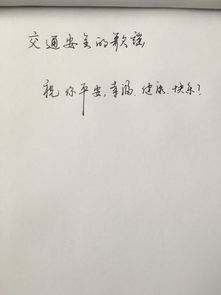 交通安全的歌谣
祝你平安,幸福.健康.快乐!